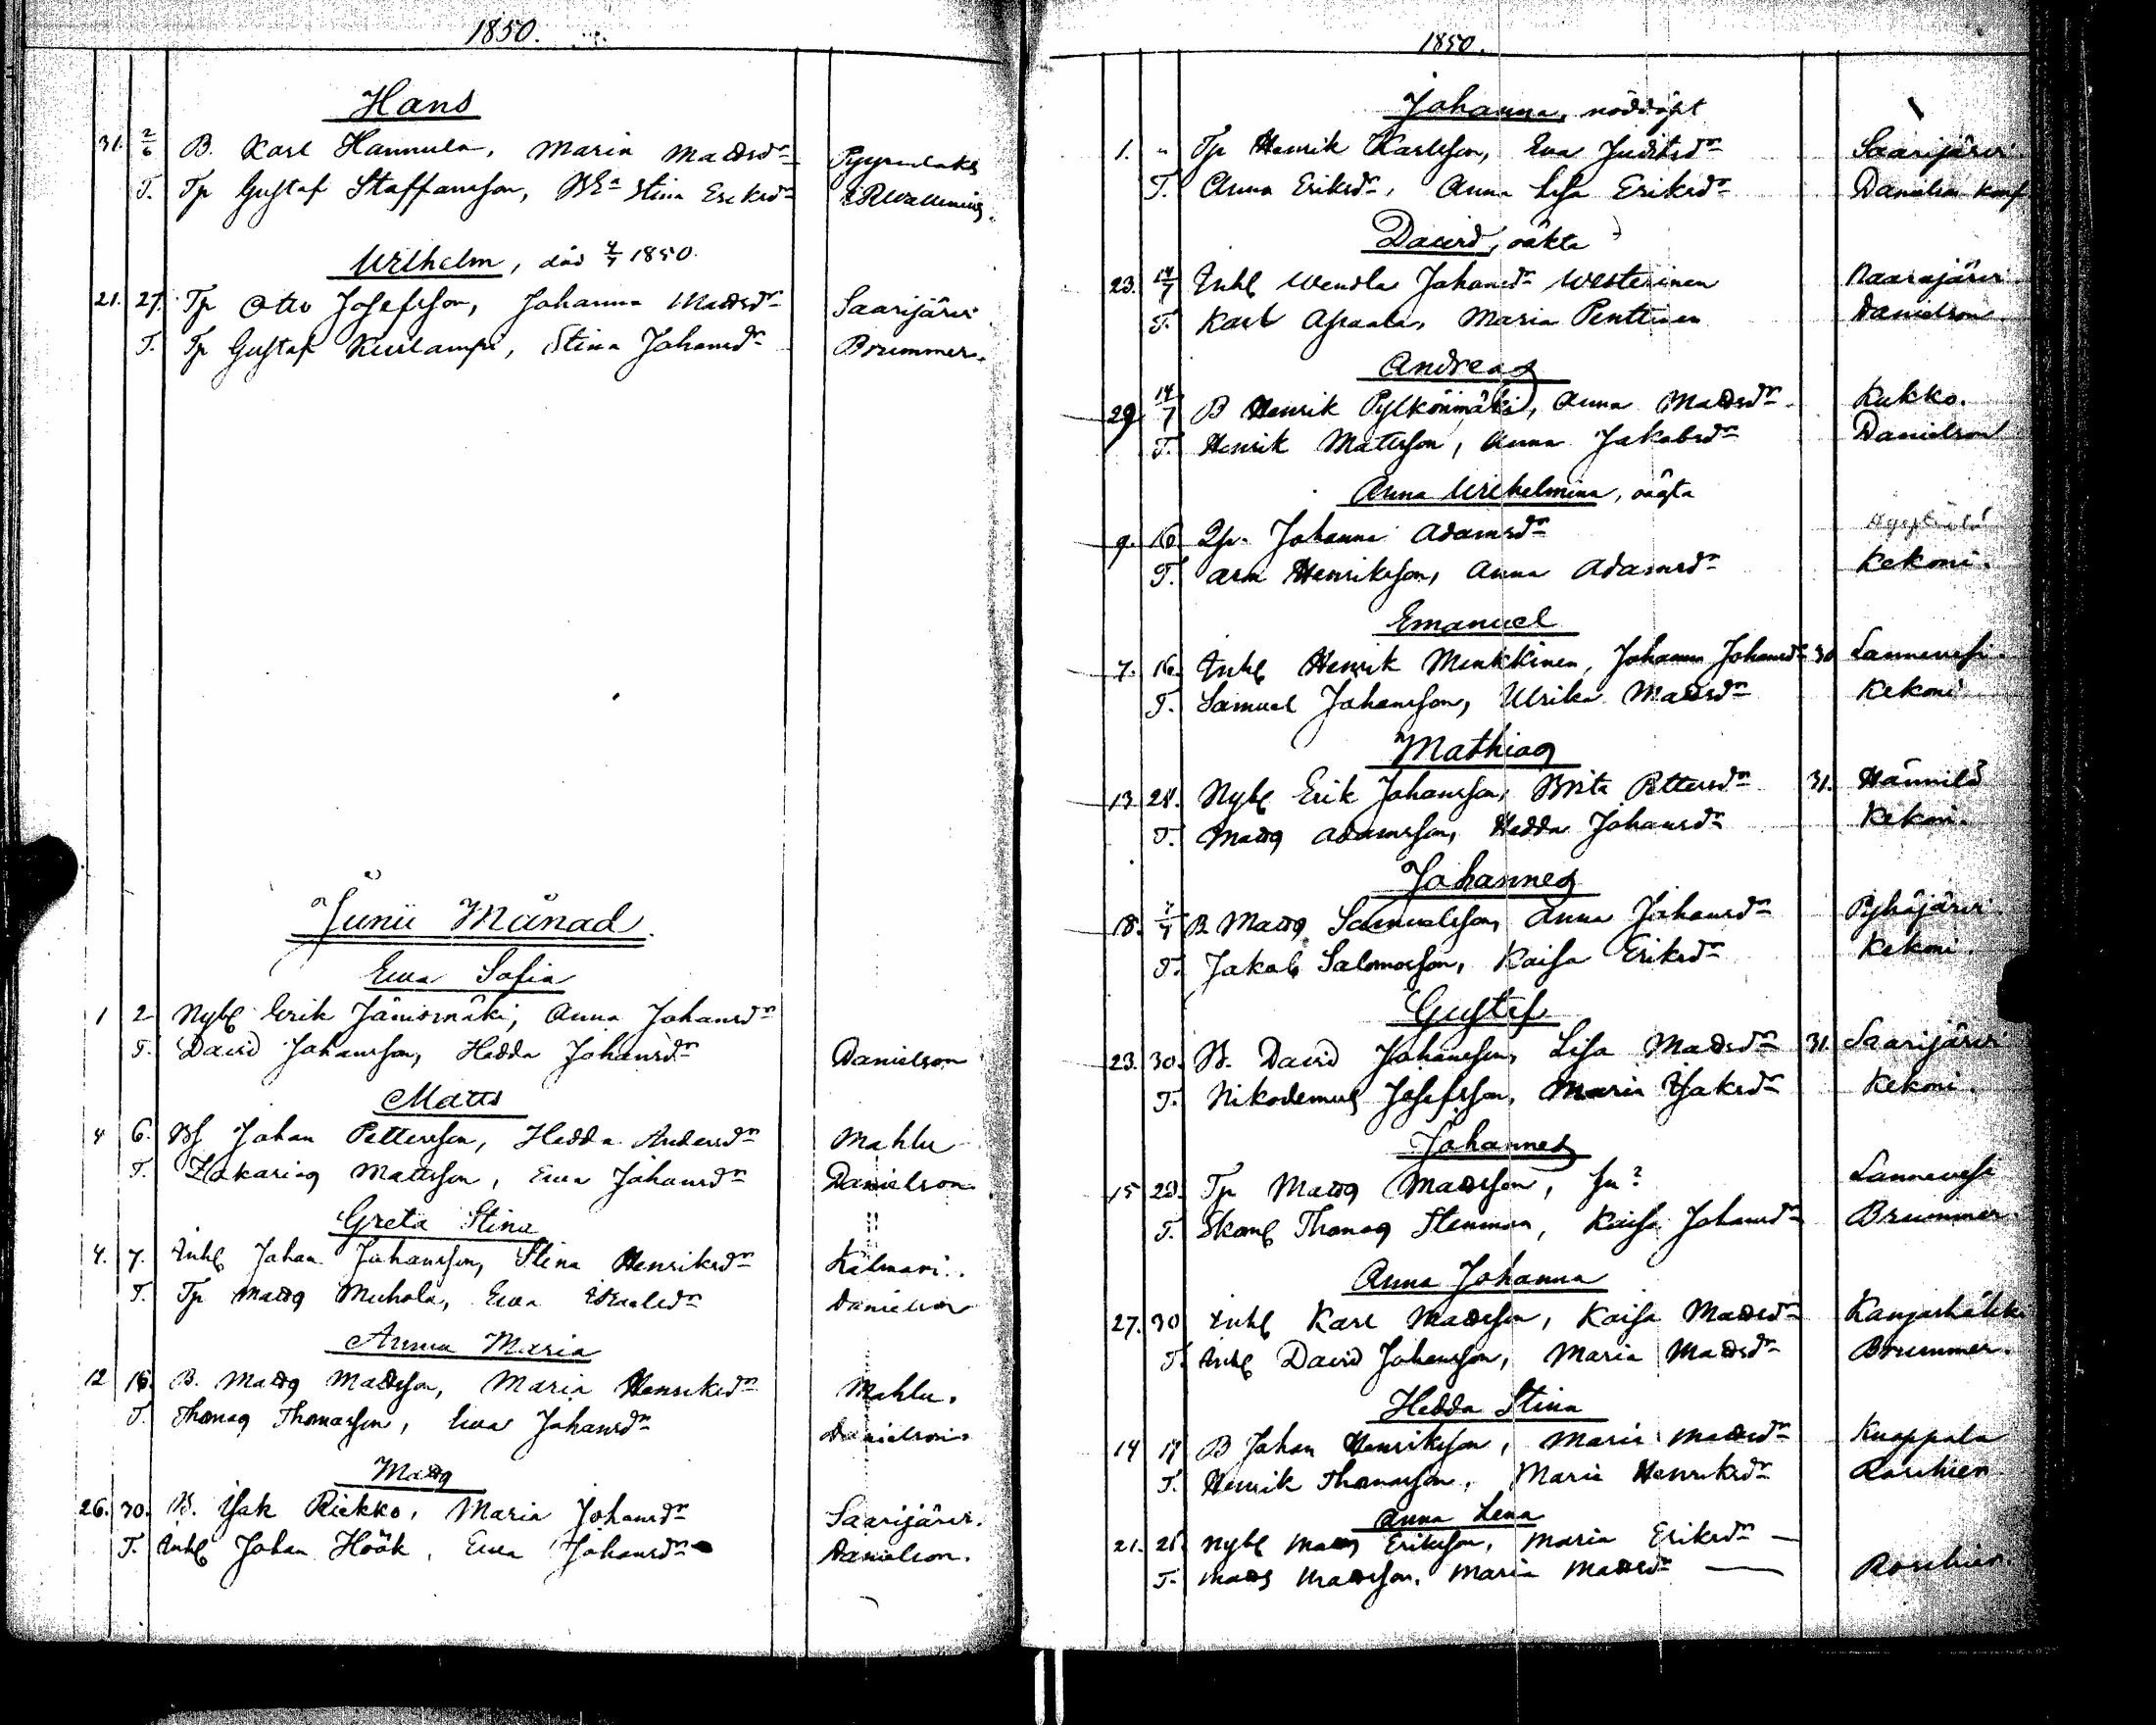 1850.
Hans
31. 2/6 B. Karl Hannula, Maria Mattsdr Pyyrinlaks
T. Tp Gustaf Staffansson, Stina Eriksdr
Wilhelm, död 4/7 1850.
21. 27. Tp Otto Josefsson, Johanna Mattsdr Saarijärvi
T. Tp Gustaf Kurlampi, Stina Johansdr Brummer.
Junii Månad
Ewa Sofia
1 2 Nyb. Erik Jänismäki, Anna Johansdr
T. David Johansson, Hedda Johansdr Danielson
Matts
4 6. Johan Pettersson, Hedda Andersdr Mahlu
T. Zakarias Mattsson, Ewa Johansdr Danielson
Greta Stina
4. 7. Inh. Johan Johansson, Stina Henriksdr Kalmari.
T. Tp Matts Muhola, Ewa Danielson
Anna Maria
12 16. B. Matts Mattsson, Maria Henriksdr Mahlu.
T. Thomas Thomasson, Ewa Johansdr Danielson.
Matts
26. 30. B. Isak Riekko, Maria Johansdr Saarijärvi.
T. Inh. Johan Höök, Ewa Johansdr Danielson.
1850.
Johanna, nöddöpt
1. " Tp Henrik Karlsson, Eva Juditsdr Saarijärvi
T. Anna Eriksdr, Anna Lisa Eriksdr Danielson konf
David, oäkta
23. 14/7 Inh. Wendla Johansdr Westerinen Naarajärvi
T. Karl Apaala, Maria Penttinen Danielson
Andreas
29 14/7 B Henrik Pylkönmäki, Anna Mattsdr Kukko.
T. Henrik Mattsson, Anna Jakobsdr Danielson
Anna Wilhelmina, oägta
9. 16 Johanna Adamsdr
T. Arn Henriksson, Anna Adamsdr Kekoni.
Emanuel
7. 16. Inh. Henrik Minkkinen, Johanna Johansdr 30 Lannevesi.
T. Samuel Johansson, Ulrika Mattsdr Kekoni
Mathias
13 28. Nyb. Erik Johansson, Brita Pettersdr 31. Hännilä
T. Matts Adamsson, Hedda Johansdr Kekoni.
Johannes
18. 7/7 B Matts Samuelsson, Anna Johansdr Pyhäjärvi.
T. Jakob Salomosson, Kaisa Eriksdr Kekoni.
Gustaf
23. 30. B. David Johansson, Lisa Mattsdr 31. Saarijärvi
T. Nikodemus Josefsson, Maria Isaksdr Kekoni.
Johannes
15 23. Tp Matts Mattsson, Lannevesi
T. Skom. Thomas Stenman, Kaisa Johansdr Brummer.
Anna Johanna
27. 30 Inh. Karl Mattsson, Kaisa Mattsdr Kangashäkki
T. Inh. David Johansson, Maria Mattsdr Brummer.
Hedda Stina
14 17 B Johan Henriksson, Maria Mattsdr Kuoppala
T. Henrik Thomasson, Maria Henriksdr Roschier
Anna Lena
21. 25. Nyb. Matts Eriksson, Maria Eriksdr —
T. Matts Mattsson, Maria Mattsdr — Roschier.